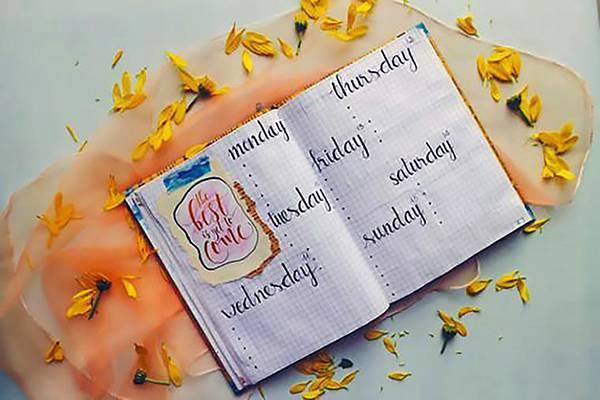 monday
the
best
is yet to
come
tuesday
wednesday
thursday
friday
saturday
sunday